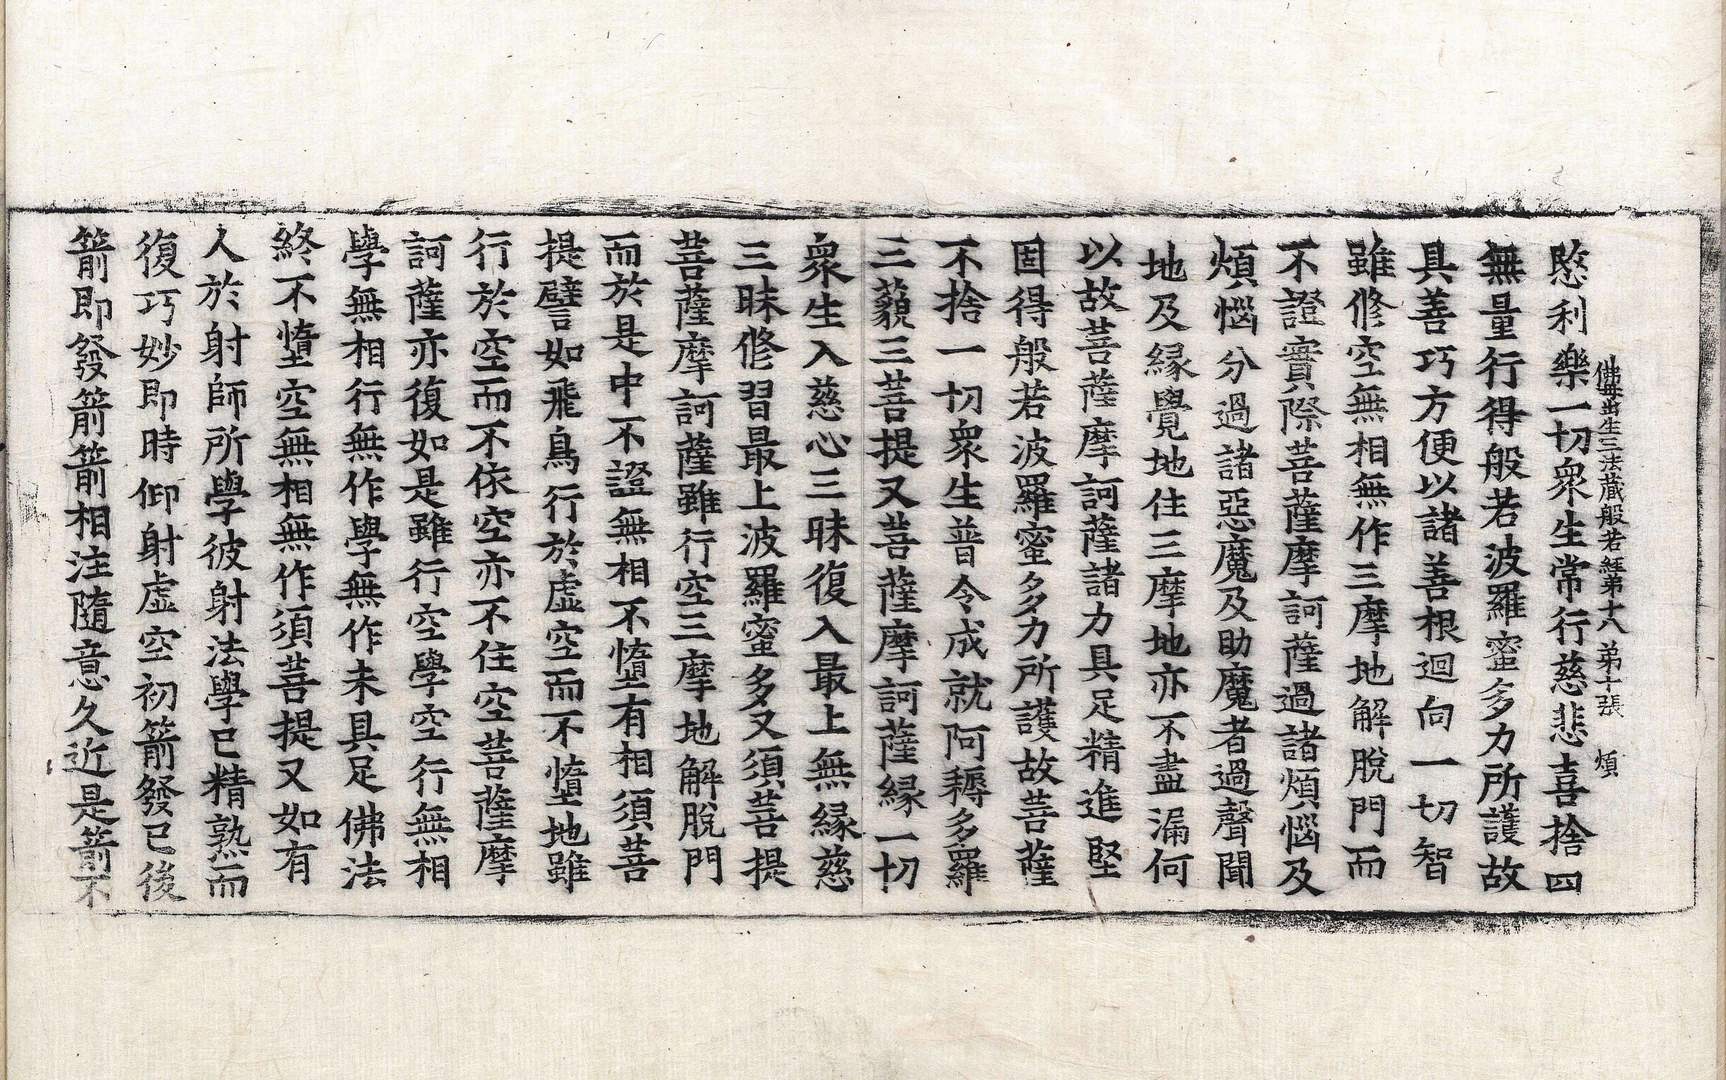 佛母出生三法藏般若經第十八 第十張 煩
愍利樂一切衆生常行慈悲喜捨四
無量行得般若波羅蜜多力所護故
具善巧方便以諸善根迴向一切智
雖修空無相無作三摩地解脫門而
不證實際菩薩摩訶薩過諸煩惱及
煩惱分過諸惡魔及助魔者過聲聞
地及緣覺地住三摩地亦不盡漏何
以故菩薩摩訶薩諸力具足精進堅
固得般若波羅蜜多力所護故菩薩
不捨一切衆生普令成就阿耨多羅
三藐三菩提又菩薩摩訶薩緣一切
衆生入慈心三昧復入最上無緣慈
三昧修習最上波羅蜜多又須菩提
菩薩摩訶薩雖行空三摩地解脫門
而於是中不證無相不墮有相須菩
提譬如飛鳥行於虛空而不墮地雖
行於空而不依空亦不住空菩薩摩
訶薩亦復如是雖行空學空行無相
學無相行無作學無作未具足佛法
終不墮空無相無作須菩提又如有
人於射師所學彼射法學已精熟而
復巧妙即時仰射虛空初箭發已後
箭即發箭箭相注隨意久近是箭不